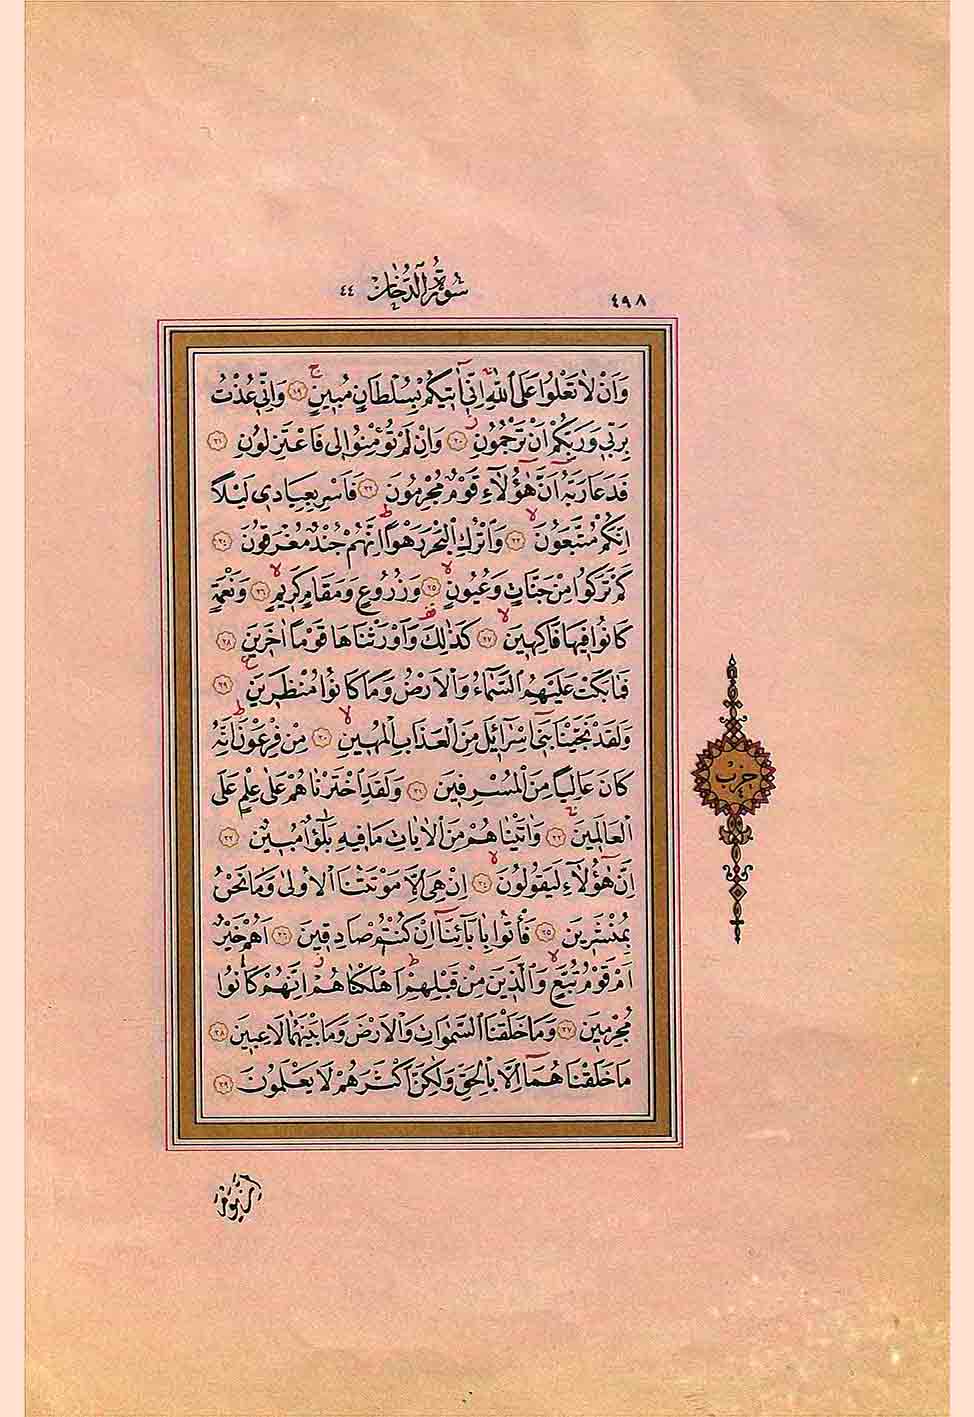 ٤٩٨
سُورَةُ الدُّخَانِ ٤٤
وَاَنْ لَا تَعْلُوا عَلَى اللّٰهِ اِنّٓي اٰتٖيكُمْ بِسُلْطَانٍ مُبٖينٍۚ ﴿١٩﴾ وَاِنّٖي عُذْتُ
بِرَبّٖي وَرَبِّكُمْ اَنْ تَرْجُمُونِۘ ﴿٢٠﴾ وَاِنْ لَمْ تُؤْمِنُوا لٖي فَاعْتَزِلُونِ ﴿٢١﴾
فَدَعَا رَبَّهُٓ اَنَّ هٰٓؤُلَٓاءِ قَوْمٌ مُجْرِمُونَ ﴿٢٢﴾ فَاَسْرِ بِعِبَادٖي لَيْلًا
اِنَّكُمْ مُتَّبَعُونَۙ ﴿٢٣﴾ وَاتْرُكِ الْبَحْرَ رَهْوًاۜ اِنَّهُمْ جُنْدٌ مُغْرَقُونَ ﴿٢٤﴾
كَمْ تَرَكُوا مِنْ جَنَّاتٍ وَعُيُونٍۙ ﴿٢٥﴾ وَزُرُوعٍ وَمَقَامٍ كَرٖيمٍۙ ﴿٢٦﴾ وَنَعْمَةٍ
كَانُوا فٖيهَا فَاكِهٖينَۙ ﴿٢٧﴾ كَذٰلِكَ وَاَوْرَثْنَاهَا قَوْمًا اٰخَرٖينَ ﴿٢٨﴾
فَمَا بَكَتْ عَلَيْهِمُ السَّمَٓاءُ وَالْاَرْضُ وَمَا كَانُوا مُنْظَرٖينَۚ ﴿٢٩﴾
وَلَقَدْ نَجَّيْنَا بَنٖٓي اِسْرَٓائٖيلَ مِنَ الْعَذَابِ الْمُهٖينِۙ ﴿٣٠﴾ مِنْ فِرْعَوْنَۜ اِنَّهُ
كَانَ عَالِيًا مِنَ الْمُسْرِفٖينَ ﴿٣١﴾ وَلَقَدِ اخْتَرْنَاهُمْ عَلٰى عِلْمٍ عَلَى
الْعَالَمٖينَۚ ﴿٣٢﴾ وَاٰتَيْنَاهُمْ مِنَ الْاٰيَاتِ مَا فٖيهِ بَلٰٓؤٌا مُبٖينٌ ﴿٣٣﴾
اِنَّ هٰٓؤُلَٓاءِ لَيَقُولُونَۙ ﴿٣٤﴾ اِنْ هِيَ اِلَّا مَوْتَتُنَا الْاُولٰى وَمَا نَحْنُ
بِمُنْشَرٖينَ ﴿٣٥﴾ فَأْتُوا بِاٰبَٓائِنَٓا اِنْ كُنْتُمْ صَادِقٖينَ ﴿٣٦﴾ اَهُمْ خَيْرٌ
اَمْ قَوْمُ تُبَّعٍۙ وَالَّذٖينَ مِنْ قَبْلِهِمْۜ اَهْلَكْنَاهُمْۘ اِنَّهُمْ كَانُوا
مُجْرِمٖينَ ﴿٣٧﴾ وَمَا خَلَقْنَا السَّمٰوَاتِ وَالْاَرْضَ وَمَا بَيْنَهُمَا لَاعِبٖينَ ﴿٣٨﴾
مَا خَلَقْنَاهُمَٓا اِلَّا بِالْحَقِّ وَلٰكِنَّ اَكْثَرَهُمْ لَا يَعْلَمُونَ ﴿٣٩﴾
حِزْبْ
اِنَّ يَوْمَ